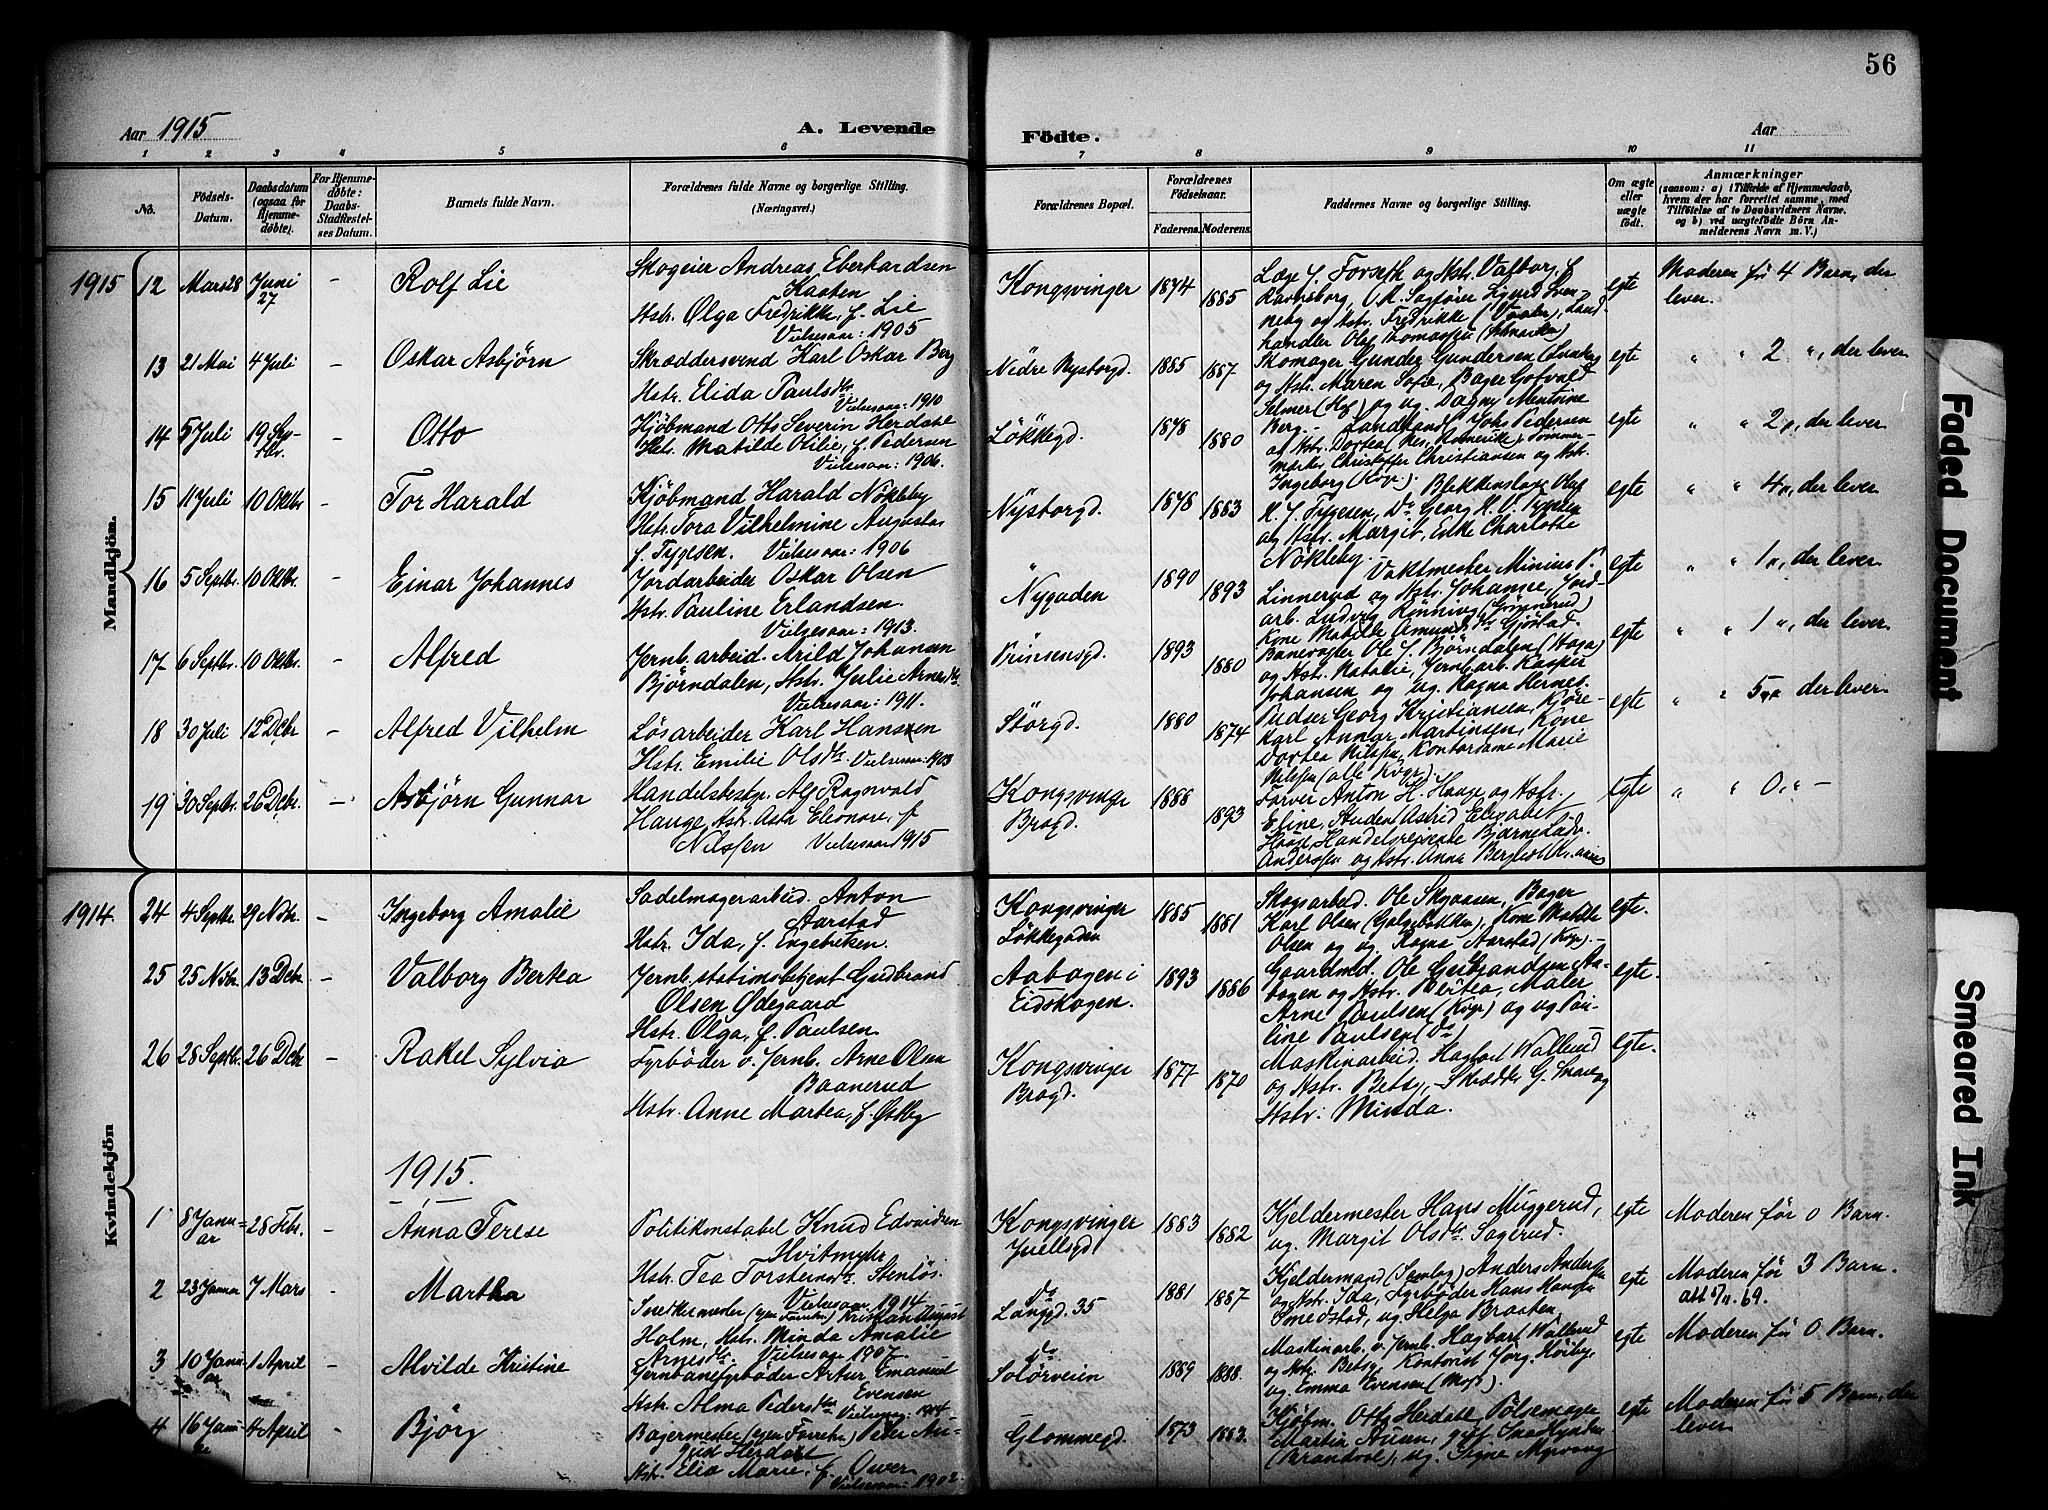 56
Aar 1915
A. Levende
Födte.
Aar
1 2 3 4 5 6 7 8 9 10 11
No.
Födsels-Datum.
Daabsdatum (ogsaa for Hjemmedöbte).
For Hjemmedöbte: Daabs-Stadfestelses Datum.
Barnets fulde Navn.
Forældrenes fulde Navne og borgerlige Stilling.
(Næringsvei.)
Forældrenes Bopæl.
Forældrenes Födselsaar.
Faderens. Moderens.
Faddernes Navne og borgerlige Stilling.
Om ægte eller uægte födt.
Anmærkninger
(saasom: a) i Tilfælde af Hjemmedaab,
hvem der har forrettet samme, med
Tilföielse af to Daabsvidners Navne.
og b) ved uægtefödte Börn An-
melderens Navn m. V.)
Mandkjön.
1915
12 Mars 28 Juni 27 - Rolf Lie
Skogeier Andreas Eberhardsen
Kaaten
Hstr. Olga Fredrikke, f. Lie
Vielsesaar: 1905
Kongsvinger 1874 1885
Læge J. Forseth og Hstr. Valborg, f
Ravnsborg, O.R. Sagfører Sigurd Sven-
neby og Hstr. Fredrikke (Vaaler), Land-
handler Olaf Thomassen
egte
Moderen før 4 Barn, der
lever.
13 21 Mai 4 Juli Oskar Asbjörn
Skræddersvend Karl Oskar Berg
Hstr. Elida Paulsdtr
Vielsesaar: 1910
Nedre Nystorgd. 1885 1887
Skomager Gunder Gundersen
og Hstr. Maren Sofie, Bager Gotvald
Selmer og ug. Dagny Mentrine
Berg.
egte
" " 2 ", der lever
14 5 Juli 19 Sep-tbr. - Otto
Kjöbmand Otto Severin Herdahl
Hstr. Matilde Otilie, f. Pedersen
Vielsesaar: 1906.
Løkkegd. 1878 1880
Landhandl. Johs Pedersen
og Hstr. Dortea
Christoffer Christiansen og Hstr.
Ingeborg (Kgv.).
egte
" " 2 ", der lever.
15 11 Juli 10 Oktbr - Tor Harald
Kjöbmand Harald Nökleby
Hstr. Tora Vilhelmine Augusta
f. Tygesen. Vielsesaar: 1906
Nystorgd. 1878 1883
Blikkenslager Olaf
M. J. Tygesen, Do Georg M. V. Tygesen
og Hstr. Margit, Enke Charlotte
Nökleby.
egte
" " 4 ", der lever
16 5 Septbr. 10 Oktbr. - Einar Johannes
Jordarbeider Oskar Olsen
Hstr. Pauline Erlandsen.
Vielsesaar: 1913.
Nygaden 1890 1893
Vaktmester Minius P.
Linnerud og Hstr. Johanne, Jord-
arb. Ludvig Rönning
Kone Matilde Amundsdtr Gjörstad.
egte
" " 1 ", der lever.
17 6 Septbr. 10 Oktbr. - Alfred
Jernb. arbeid. Arild Johansen
Björndalen, Hstr. Julie Arnesdtr.
Vielsesaar: 1911.
Prinsensgd. 1893 1880
Banevogter Ole J. Björndalen (Haga)
og Hstr. Natalie, Jernb. arb. Kasper
Johansen og ug. Ragna Hernes.
egte
" " 1 ", der lever.
18 30 Juli 12 Dcbr - Alfred Vilhelm
Lösarbeider Karl Hanssen
Hstr. Emilie Olsdtr. Vielsesaar: 1903
Storgd. 1880 1874
Pudser Georg Kristiansen, Kjöre-
karl Annar Martinsen, Kone
Dortea Nilssen, Kontordame Marie
Nilssen (alle Kgv.).
egte
" " 5 " der lever.
19 30 Septbr. 26 Dcbr. - Asbjörn Gunnar
Handelsbestyr. Alf Ragnvald
Hauge, Hstr. Asta Eleonore, f
Nilssen Vielsesaar 1915
Kongsvinger
Brogd. 1888 1893
Farver Anton H. Hauge og Hstr.
Eline, Student Astrid Elisabet
Handelsreisende Bjarne
Anderssen og Hstr. Anna
egte
" " 0 " -
Kvindekjön
1914.
24 4 Septbr. 29 Nvbr. - Ingeborg Amalie
Sadelmagerarbeid. Anton
Aarstad
Hstr. Ida, f. Engebretsen.
Kongsvinger
Løkkegaden 1885 1881
Skogsarbeid. Ole Skjaasen, Bager
Karl Olsen (Galgebakken), Kone Matilde
Olsen og ug. Ragna Aarstad (Kgv.) -
egte.
25 25 Nvbr. 13 Dcbr. - Valborg Bertea
Jernb. stationsbetjent Gudbrand
Olsen Ødegaard
Hstr. Olga, f. Paulsen.
Aabogen i
Eidskogen. 1893 1886
Gaardmd. Ole Gulbrandsen Aa-
bogen og Hstr. Bertea, Maler
Arne Paulsen (Kgv) og ug Pau-
line Paulsen (Do)
egte.
26 28 Septbr. 26 Dcbr - Rakel Sylvia
Fyrböder v. Jernb. Arne Olsen
Baanerud
Hstr. Anne Martea, f. Østby
Kongsvinger
Brogd. 1877 1870
Maskinarbeid. Hagbart Wallerud
og Hstr. Betsy, Skrædder G.
Hstr. Minda.
egte.
1915.
1 8 Janu-ar 28 Febr. - Anna Terese
Politikonstabel Knud Edvardsen
Hvitmyhr
Hstr. Tea Torstensdtr. Stenlös.
Vielsesaar: 1914
Kongsvinger
Juellsgd 1883 1882
Kjeldermester Hans Muggerud,
ug. Margit Olsdtr Sagerud.
egte
Moderen før 0 Barn.
2 23 Januar 7 Mars - Martha
Snedkermester (egen Forretn.) Kristian August
Holm, Hstr. Minda Amalie
Arnesdtr. Vielsesaar 1907.
do
Langgd. 35 1881 1887
Kjeldermand (Samlag) Anders Anderssen
og Hstr. Ida, Fyrböder Hans Hansen
Smedstad, ug Helga Braaten.
egte
Moderen før 3 Barn.
3 10 Janu-ar 1 April - Alvilde Kristine
Jernbanefyrböder Artur Emanuel
Evensen
Hstr. Alma Pedersdtr Vielsesaar: 1914
do
Solörveien 1889 1888.
Maskinarb. v. Jernb. Hagbart Wallerud
og Hstr. Betsy, Kontorist Jörg. Höiby,
ug. Emma Evensen
egte
Moderen før 0 Barn.
4 16 Janu- 4 April - Björg
Bagermester (egen Forretn.) Peter Au-
gust Herdahl
Hstr. Elia Marie, f. Over
Vielsesaar: 1902.
Glommegd. 1873 1883.
Kjöbm. Otto Herdahl, Pölsemager
Martin Auen, gift
(Brandval), ug. Signe Myrvang
egte
Moderen før 5 Barn, der
lever
Faded Document
Smeared Ink